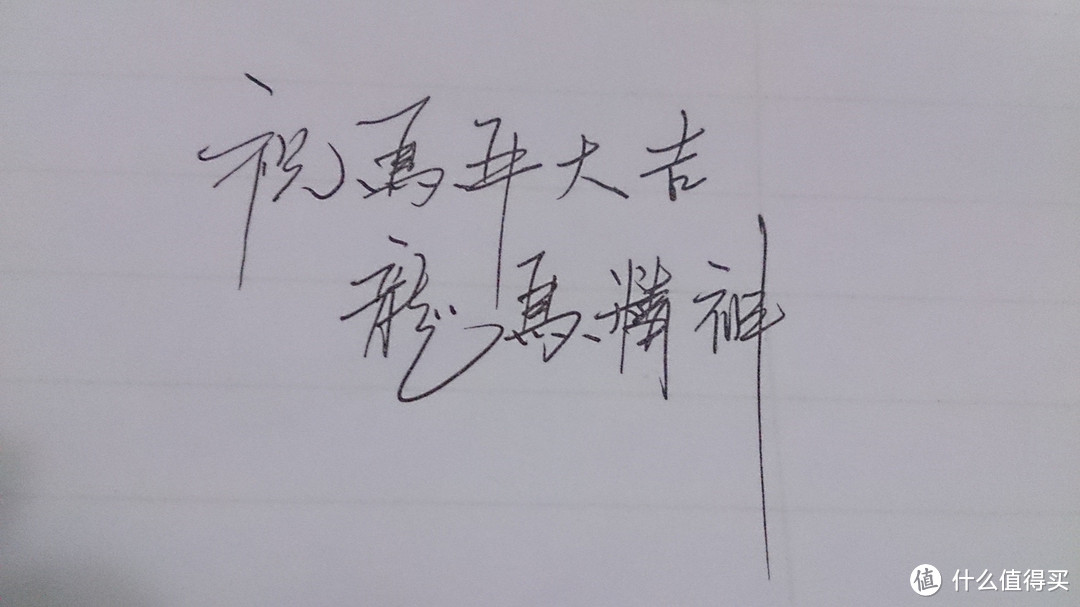 祝馬年大吉
龍馬精神
值 什么值得买